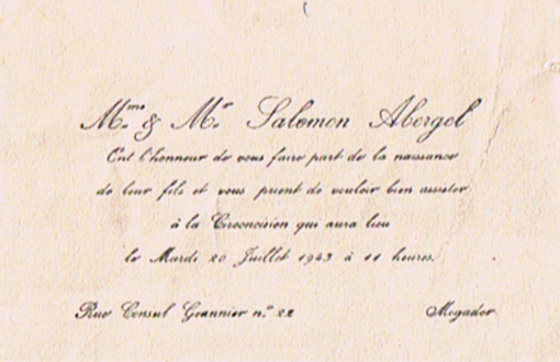 Mme & Mr Salomon Abergel
Ont l'honneur de vous faire part de la naissance
de leur fils et vous prient de vouloir bien assister
à la Circoncision qui aura lieu
le Mardi 20 Juillet 1943 à 11 heures.
Rue Consul Geannier n.º 22
Mogador.